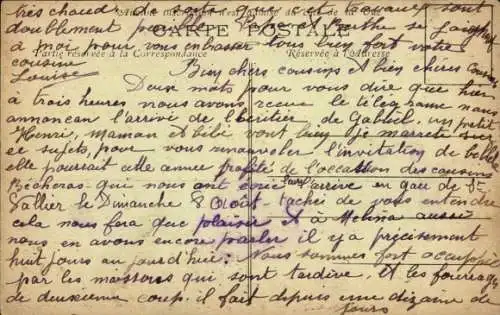 très chaud, de sorte que ces travaux sont
doublement pénibles
CARTE POSTALE
à moi pour vous embrasser tous bien fort votre
Partie réservée à la Correspondance Réservée à l'Adresse
cousine
Louise
Bien chers cousins et bien chères cousines
Deux mots pour vous dire que hier
à trois heures nous avons recue le télégramme nous
annoncan l'arrivé de l'héritier de Gabriel, un petit
Henri, maman et bébé vont bien je marrete sur
ce sujets, pour vous renouveler l'invitation de
elle pourrait cette année profité de l'occasion des cousins
Bécheras qui nous ont écrit leur arrivé en gare de St
Vallier le Dimanche 8 Août tachée de vous entendre
cela nous fera que plaisir et à aussi
nous en avons encore parler il y a précisement
huit jours aujourd'hui: Nous sommes fort occupés
par les moissons qui sont tardive, et les fourrages
de deuxième coup, il fait depuis une dizaine de
jours